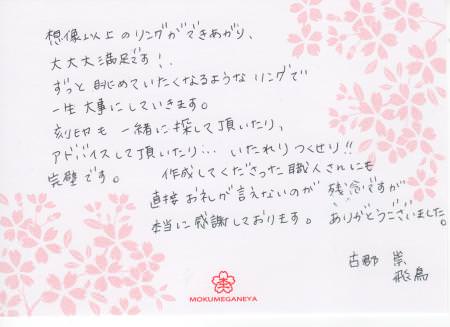 想像以上のリングができあがり、
大大大満足です!!
ずっと眺めていたくなるようなリングで
一生大事にしていきます。
刻印も一緒に探して頂いたり、
アドバイスして頂いたり… いたれりつくせり!!
完璧です。 作成してくださった職人さんにも
直接お礼が言えないのが残念ですが
本当に感謝しております。 ありがとうございました。
古郡 崇
飛鳥
MOKUMEGANEYA